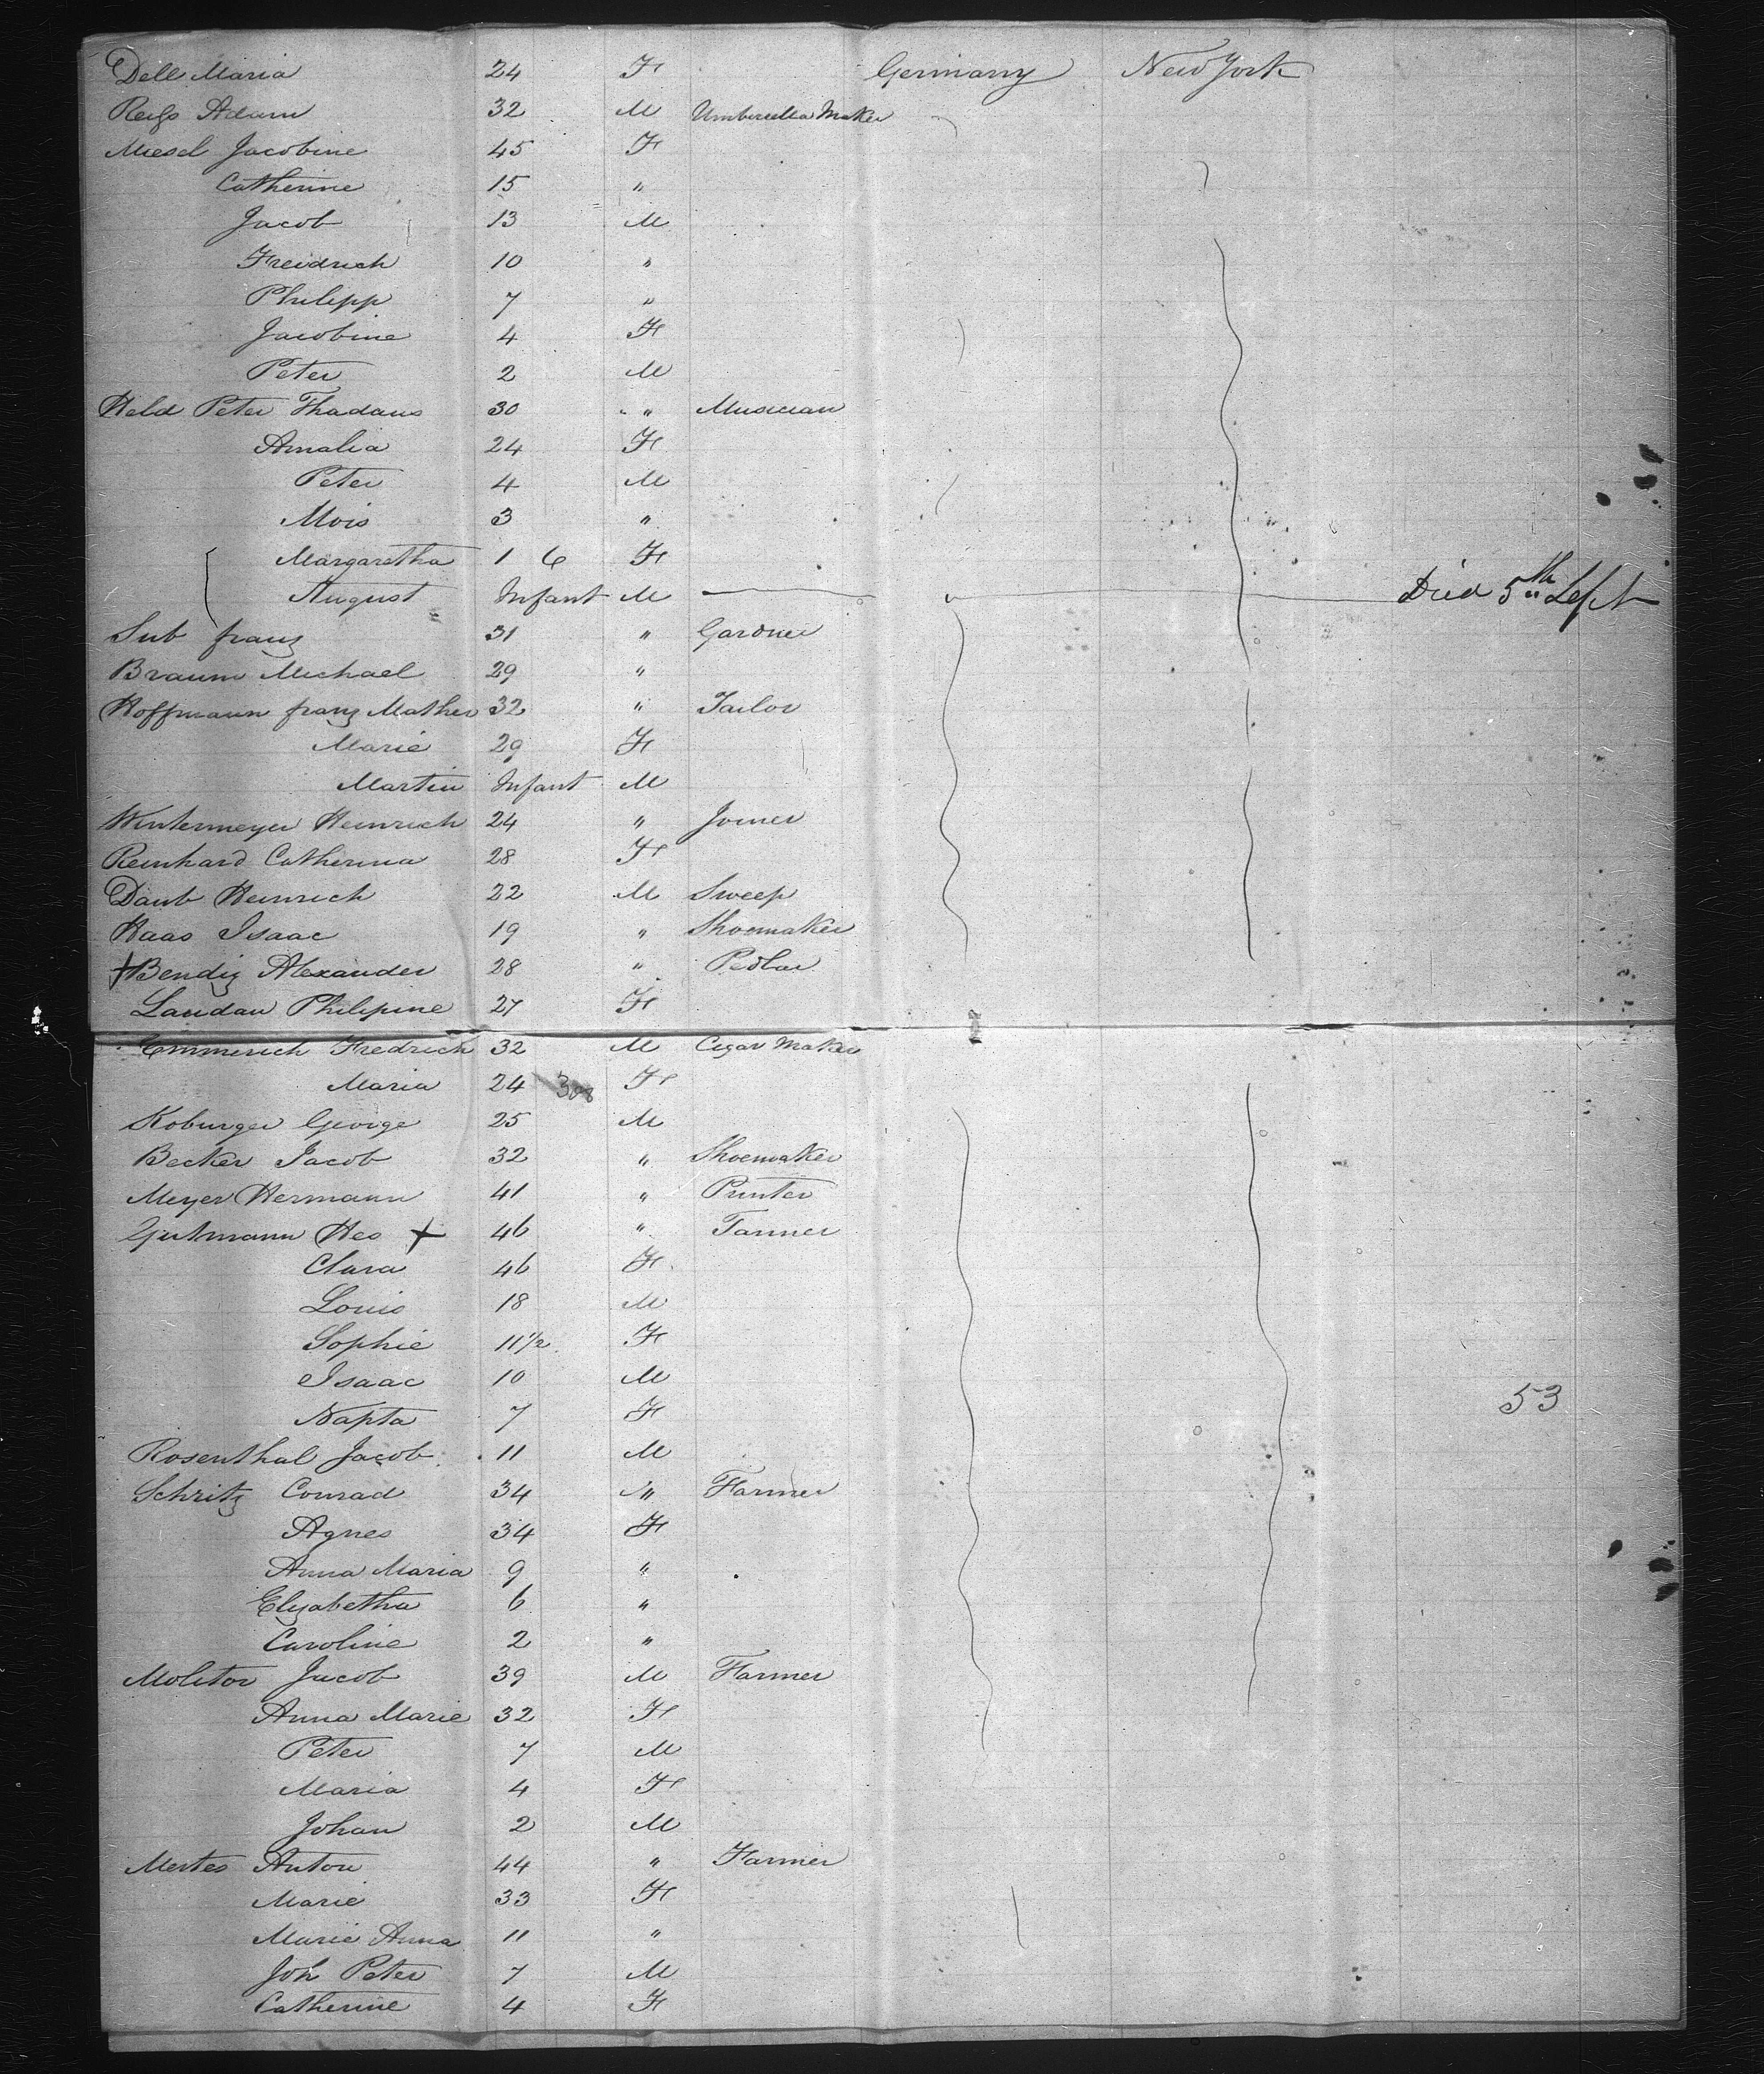 Dell Maria 24 F Germany New York
Reifs Adam 32 M Umbrella Maker
Miesel Jacobine 45 F
Catherine 15 "
Jacob 13 M
Freidrich 10 "
Philipp 7 "
Jacobine 4 F
Peter 2 M
Held Peter Thadaus 30 " Musician
Amalia 24 F
Peter 4 M
Alois 3 "
Margaretha 1 6 F
August Infant M Died 5th Sept
Sub franz 31 " Gardner
Braum Michael 29 "
Hoffmann franz Mather 32 " Tailor
Marie 29 F
Martin Infant M
Wintermeyer Heinrich 24 " Joiner
Reinhard Catherina 28 F
Daub Heinrich 22 M Sweep
Haas Isaac 19 " Shoemaker
+ Bendig Alexander 28 " Pedlar
Landau Philipine 27 F
Emmerich Fredrich 32 M Cigar Maker
Maria 24 F
Koburger George 25 M
Becker Jacob 32 " Shoemaker
Meyer Hermann 41 " Printer
Gutmann Hes + 46 " Tanner
Clara 46 F
Louis 18 M
Sophie 11 1/2 F
Isaac 10 M
Napta 7 F
53
Rosenthal Jacob 11 M
Schritz Conrad 34 " Farmer
Agnes 34 F
Anna Maria 9 "
Elizabetha 6 "
Caroline 2 "
Molitor Jacob 39 M Farmer
Anna Marie 32 F
Peter 7 M
Maria 4 F
Johan 2 M
Mertes Anton 44 " Farmer
Marie 33 F
Marie Anna 11 "
Joh Peter 7 M
Catherine 4 F